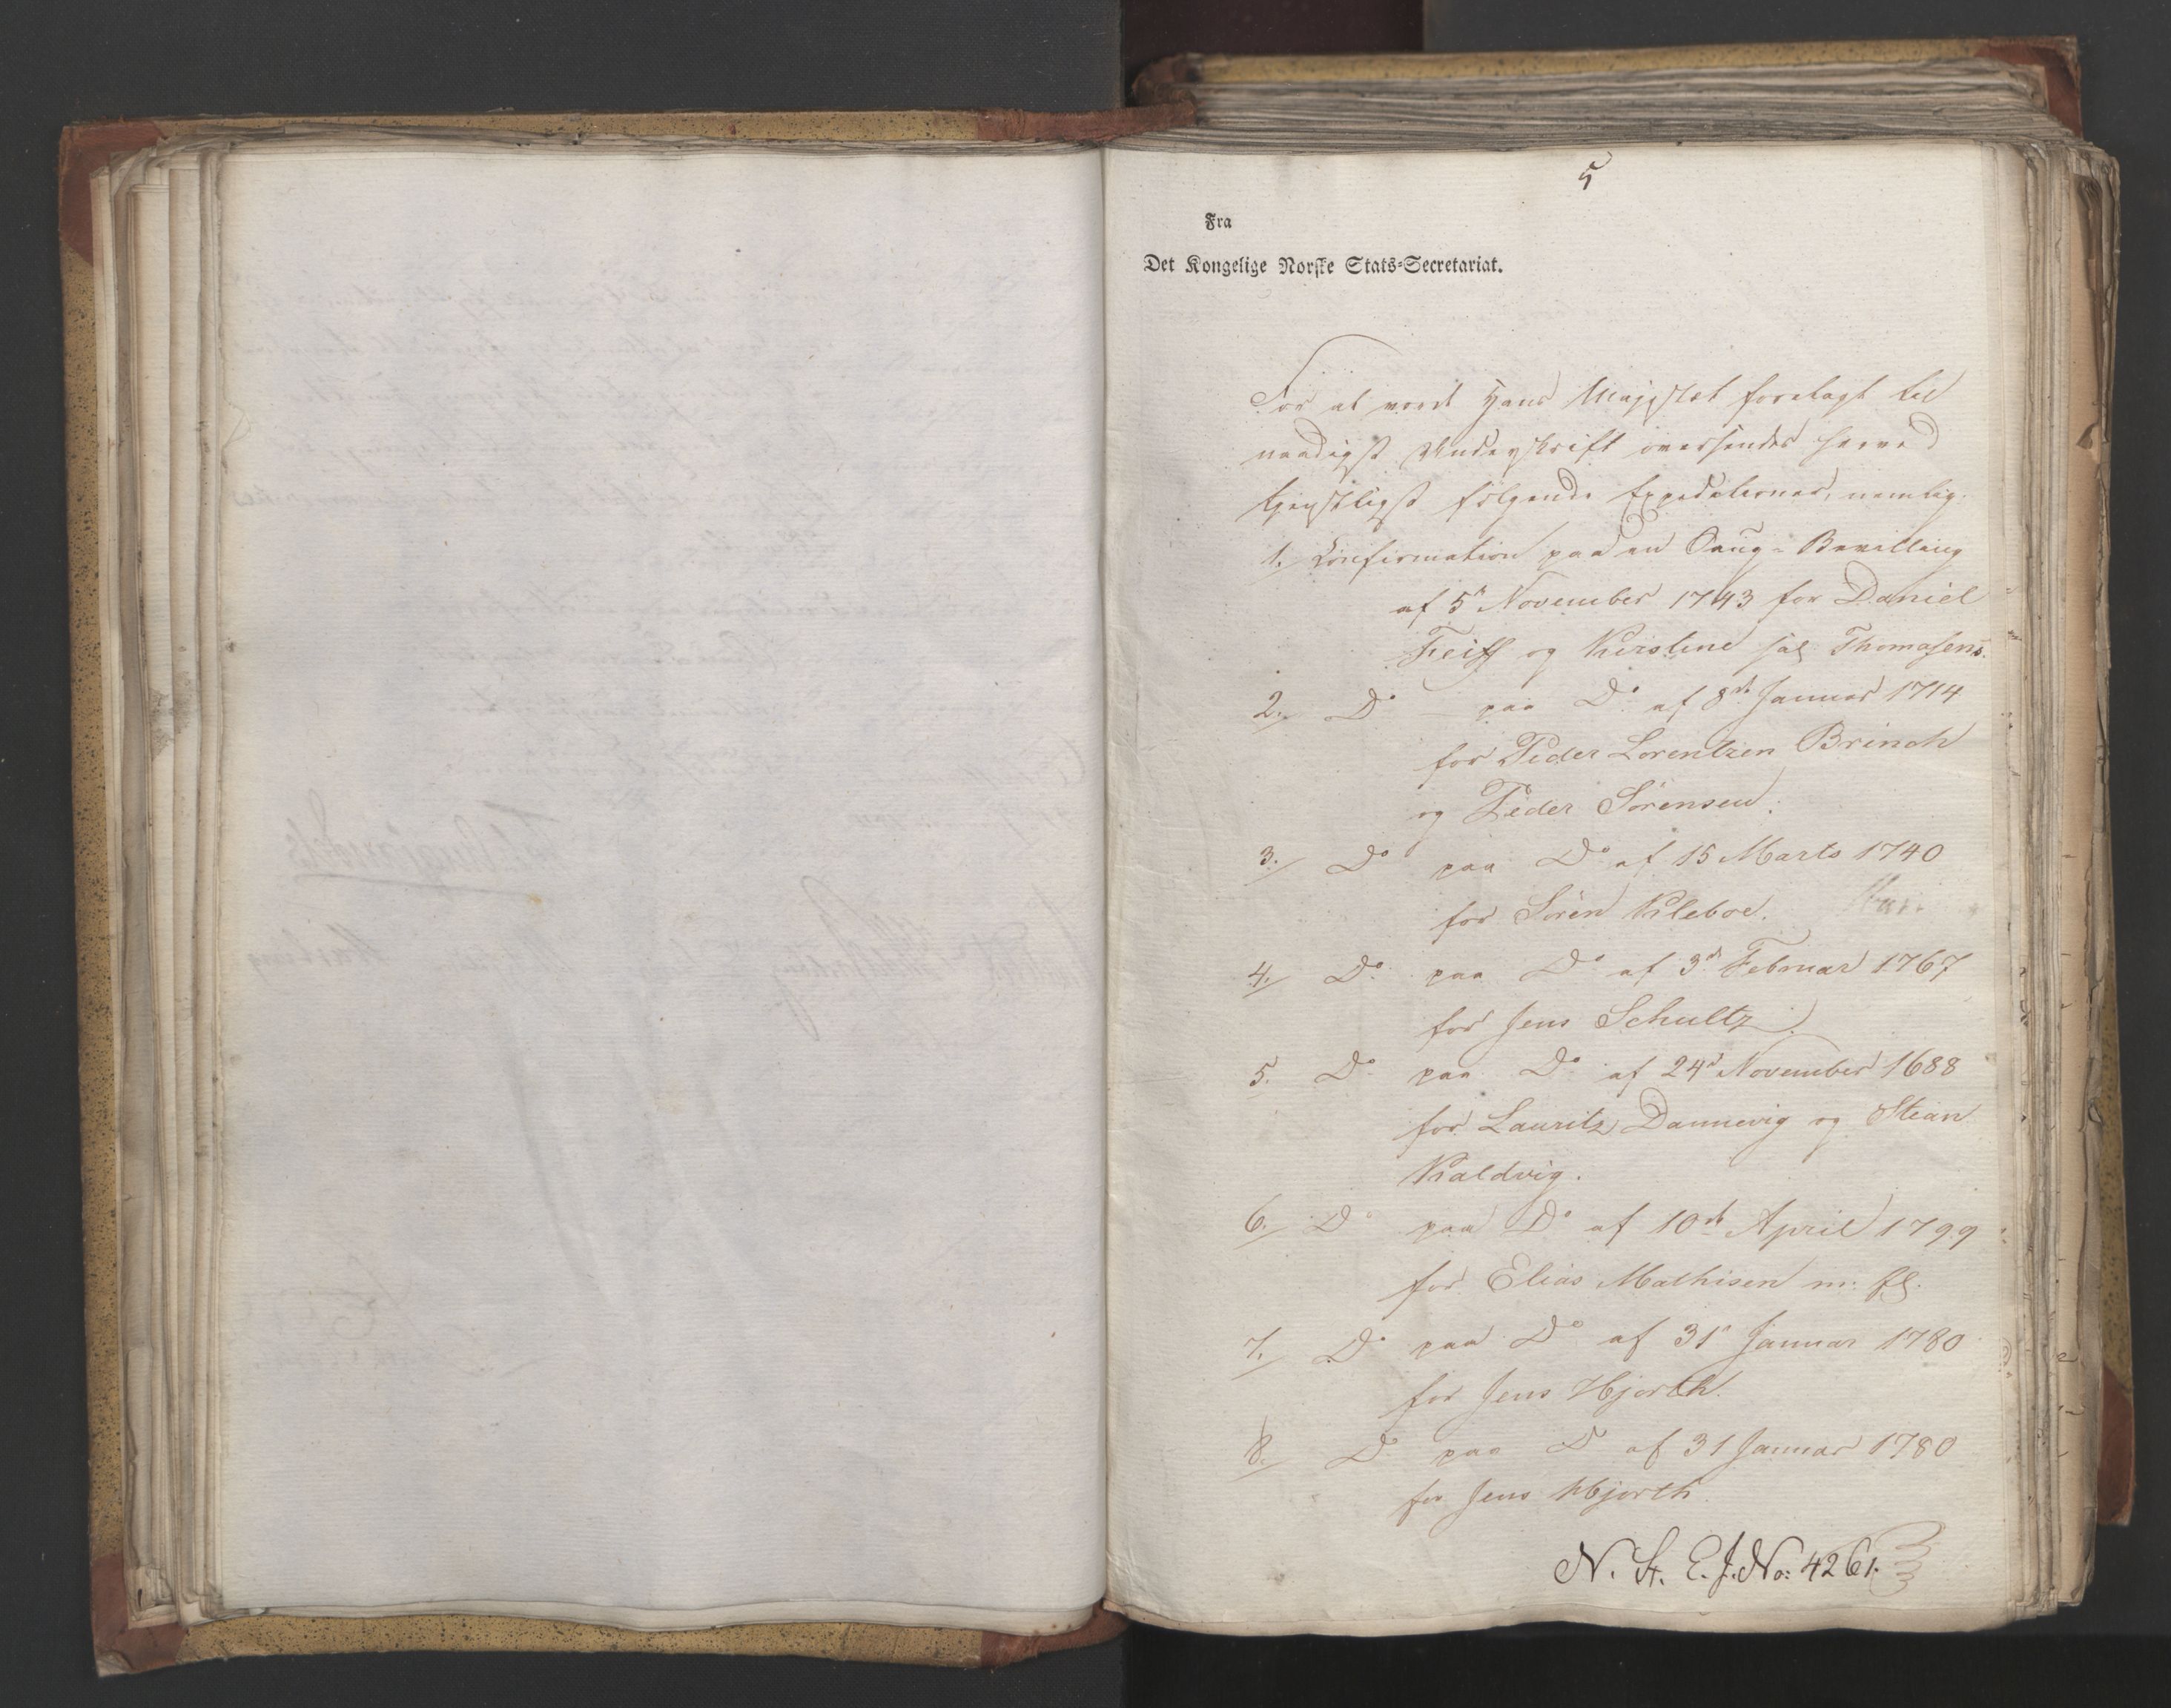 5
Fra
Det Kongelige Norske Stats-Secretariat.
For at vorde Hans Majestæt forelagt til
naadigst Underskrift oversendes herved
tjenstligst følgende Expeditioner, nemlig:
1. Confirmation paa en Saug-Bevilling
af 5t November 1743 for Daniel
Feiff og Kirstine sal. Thomasens.
2. Do paa Do af 8de Januar 1714
for Peder Lorentzen Brinch
og Peder Sørensen.
3. Do paa Do af 15 Marts 1740
for Søren Kleboe.
4. Do paa Do af 3de Februar 1767
for Jens Schultz.
5. Do paa Do af 24d November 1688
for Lauritz Dannevig og Stean
Kaldvig.
6. Do paa Do af 10de April 1799
for Elias Mathisen m: fl.
7. Do paa Do af 31t Januar 1780
for Jens Hjorth.
8. D paa D af 31 Januar 1780
for Jens Hjorth.
N. St. E. J. No: 4261.